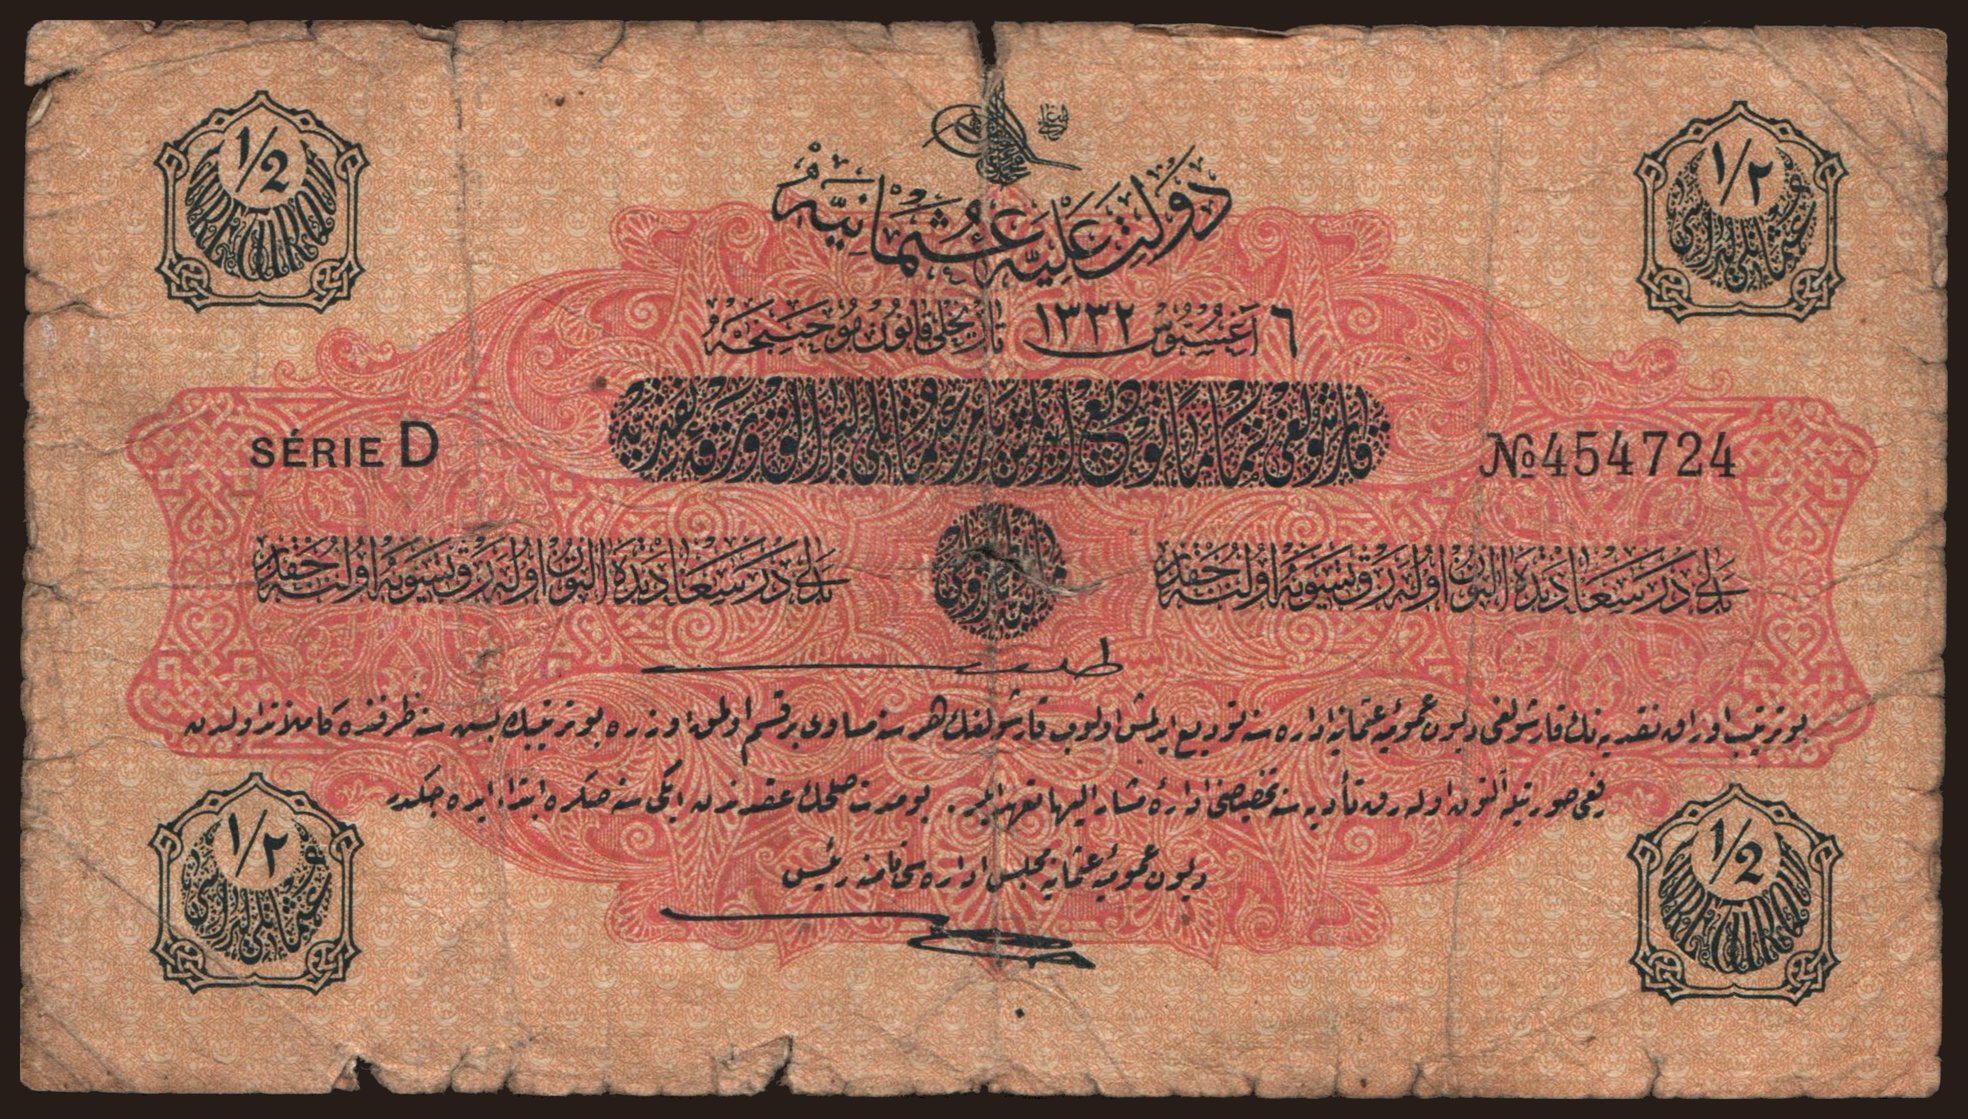 1/2
LIVRE TURQUE
١/٢
عثمانلی لیراسی
دولت علیه عثمانیه
٦ اغستوس ١٣٣٢ تاریخلی قانون موجبنجه
قارشولغی تماما تودیع ایدلمش یارم عثمانلی لیرالق ورقه نقدیه
SÉRIE D
№454724
بدلی در سعادتده التون اوله رق تسویه اولنه جقدر
ناظری
بدلی در سعادتده التون اوله رق تسویه اولنه جقدر
بو ترتیب اوراق نقدیه نك قارشولغی دیون عمومیه عثمانیه اداره سنه تودیع ایدلمش اولوب قارشولغك هر سنه مساوی بر قسم اولمق اوزره بو ترتیبك بش سنه ظرفنده کاملا نقدا اولدن
یعنی صورتیله التون اوله رق تأدیه سنه تخصیصنی اداره مشار الیها تعهد ایلر. بو مدت صلحك عقدندن ایکی سنه صکره ابتدا ایده جکدر
دیون عمومیه عثمانیه مجلس اداره سی نامنه رئیس
١/٢
عثمانلی لیراسی
1/2
LIVRE TURQUE